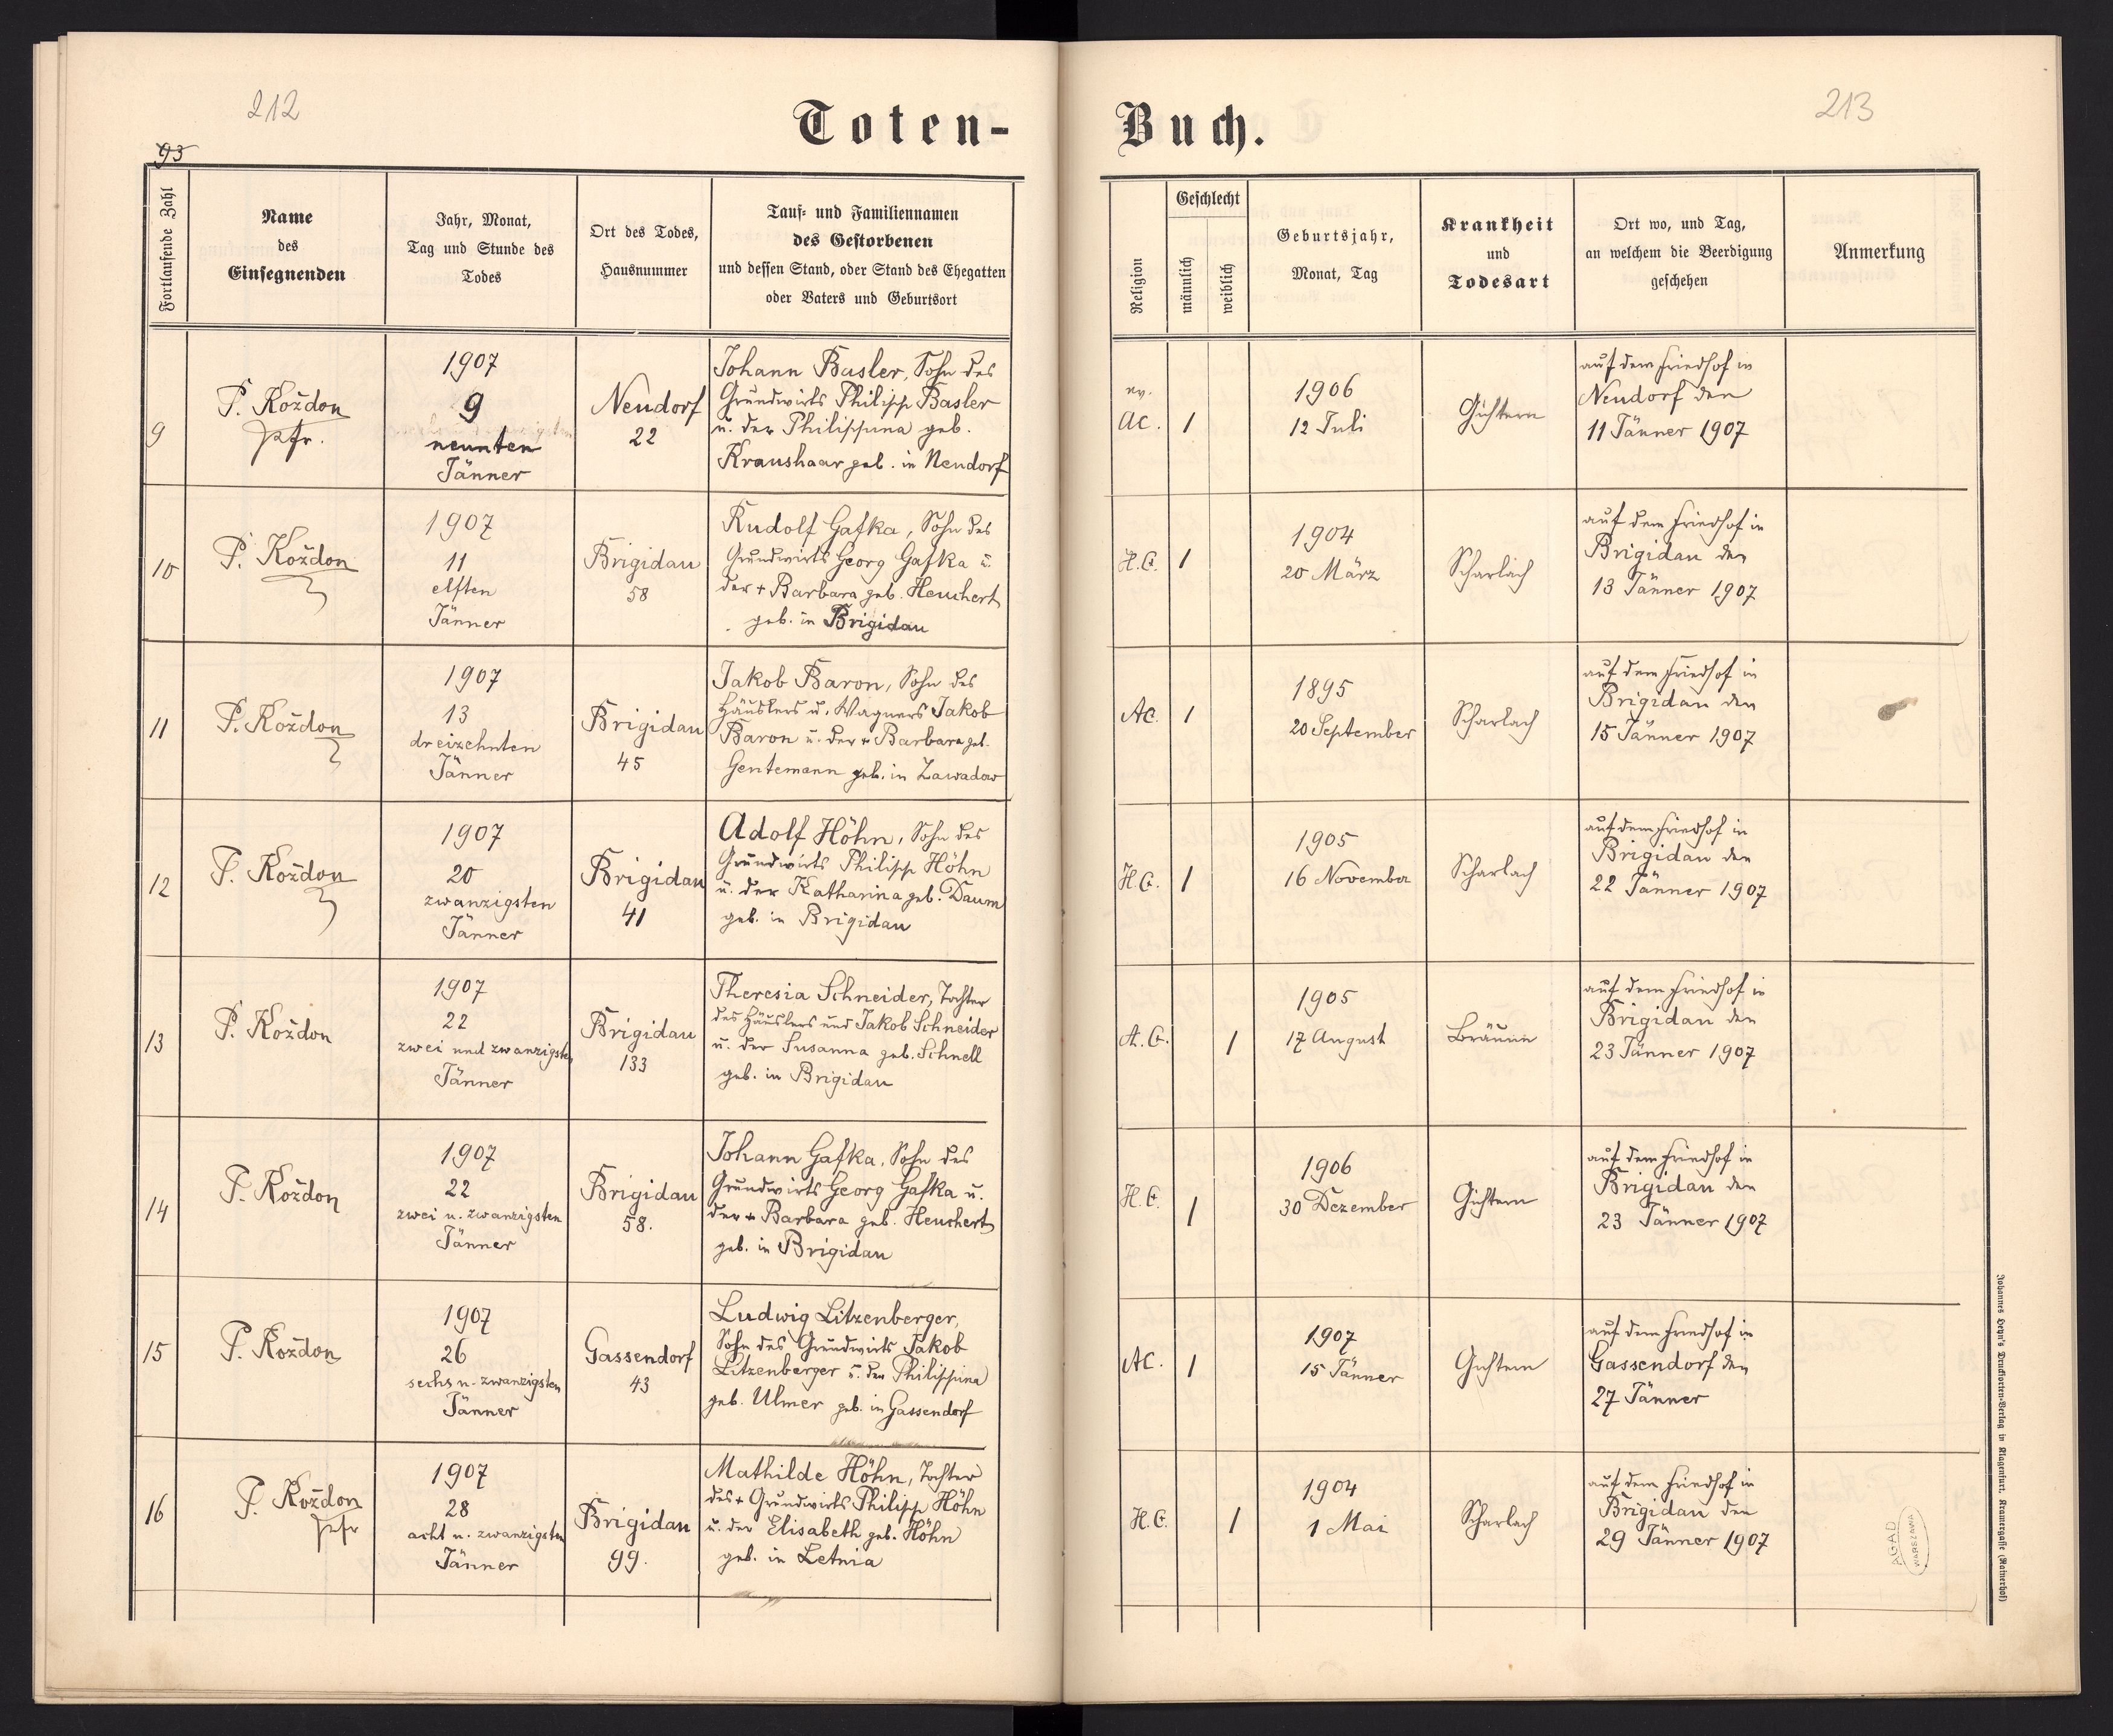 212
Toten-
93
Fortlaufende Zahl
Name
des
Einsegnenden
Jahr, Monat,
Tag und Stunde des
Todes
Ort des Todes,
Hausnummer
Tauf- und Familiennamen
des Gestorbenen
und dessen Stand, oder Stand des Ehegatten
oder Vaters und Geburtsort
9
P. Kożdon
Pfr.
1907
9
neunten
Jänner
Neudorf
22
Johann Basler, Sohn des
Grundwirts Philipp Basler
u. der Philippina geb.
Kraushaar geb. in Neudorf
10
P. Kożdon
1907
11
elften
Jänner
Brigidau
58
Rudolf Gafka, Sohn des
Grundwirts Georg Gafka u.
der + Barbara geb. Heuchert
geb. in Brigidau
11
P. Kożdon
1907
13
dreizehnten
Jänner
Brigidau
45
Jakob Baron, Sohn des
Häuslers u. Wagners Jakob
Baron u. der + Barbara geb.
Gentemann geb. in Zawadow
12
P. Kożdon
1907
20
zwanzigsten
Jänner
Brigidau
41
Adolf Höhn, Sohn des
Grundwirts Philipp Höhn
u. der Katharina geb. Daum
geb. in Brigidau
13
P. Kożdon
1907
22
zwei und zwanzigsten
Jänner
Brigidau
133
Theresia Schneider, Tochter
des Häuslers und Jakob Schneider
u. der Susanna geb. Schnell
geb. in Brigidau
14
P. Kożdon
1907
22
zwei u. zwanzigsten
Jänner
Brigidau
58.
Johann Gafka, Sohn des
Grundwirts Georg Gafka u.
der + Barbara geb. Heuchert
geb. in Brigidau
15
P. Kożdon
1907
26
sechs u. zwanzigsten
Jänner
Gassendorf
43
Ludwig Litzenberger,
Sohn des Grundwirts Jakob
Litzenberger u. der Philippina
geb. Ulmer geb. in Gassendorf
16
P. Kożdon
Pfr
1907
28
acht u. zwanzigsten
Jänner
Brigidau
99.
Mathilde Höhn, Tochter
des + Grundwirts Philipp Höhn
u. der Elisabeth geb. Höhn
geb. in Letnia
213
Buch.
Religion
Geschlecht
männlich
weiblich
Geburtsjahr,
Monat, Tag
Krankheit
und
Todesart
Ort wo, und Tag,
an welchem die Beerdigung
geschehen
Anmerkung
ev.
AC.
1
1906
12 Juli
Gichtern
auf dem Friedhof in
Neudorf den
11 Jänner 1907
H.C.
1
1904
20 März
Scharlach
auf dem Friedhof in
Brigidau den
13 Jänner 1907
AC.
1
1895
20 September
Scharlach
auf dem Friedhof in
Brigidau den
15 Jänner 1907
H.C.
1
1905
16 November
Scharlach
auf dem Friedhof in
Brigidau den
22 Jänner 1907
A.C.
1
1905
17 August
Bräune
auf dem Friedhof in
Brigidau den
23 Jänner 1907
H.C.
1
1906
30 Dezember
Gichtern
auf dem Friedhof in
Brigidau den
23 Jänner 1907
AC.
1
1907
15 Jänner
Gichtern
auf dem Friedhof in
Gassendorf den
27 Jänner
H.C.
1
1904
1 Mai
Scharlach
auf dem Friedhof in
Brigidau den
29 Jänner 1907
AGAD
WARSZAWA
Johannes Heyn's Drucksorten-Verlag in Klagenfurt, Kramergasse (Rainerhof)